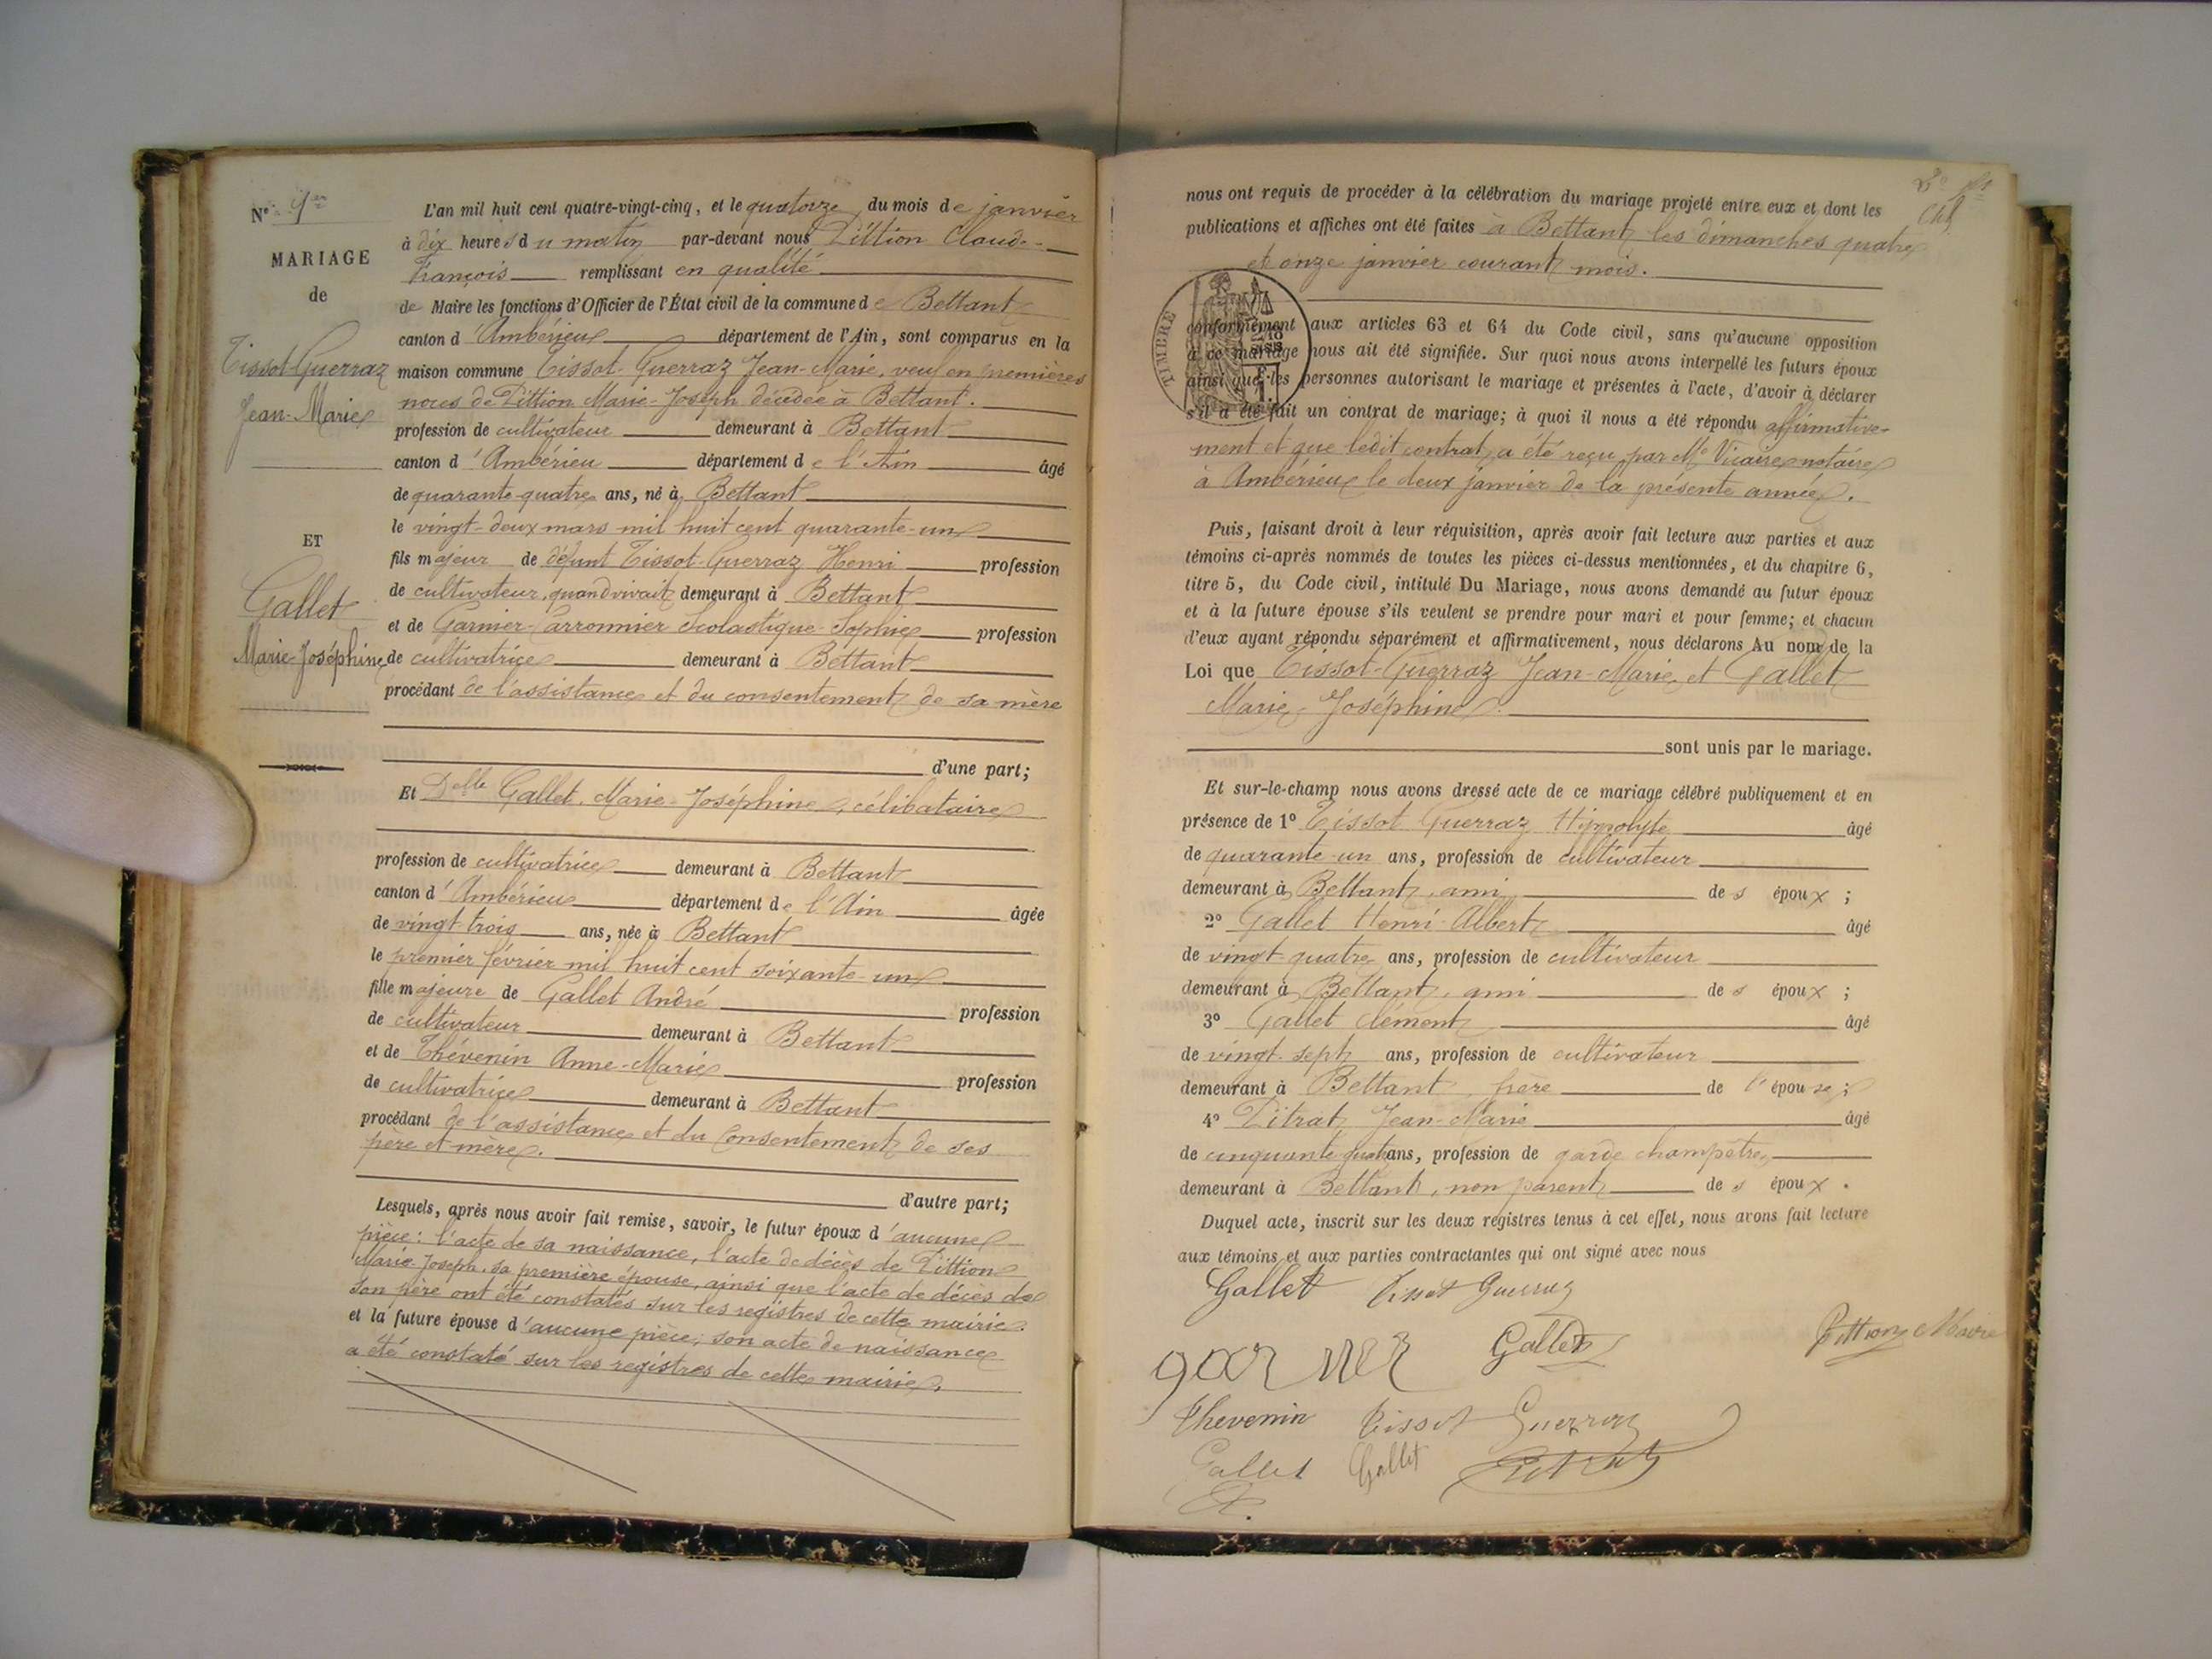 N° 1er
MARIAGE
de
Tissot-Guerraz
Jean-Marie
ET
Gallet
Marie-Joséphine
L'an mil huit cent quatre-vingt-cinq, et le quatorze du mois de janvier
à dix heures du matin par-devant nous Pittion Claude-
François remplissant en qualité
de Maire les fonctions d'Officier de l'État civil de la commune de Bettant
canton d'Ambérieu département de l'Ain, sont comparus en la
maison commune Tissot-Guerraz Jean-Marie, veuf en premières
noces de Pittion Marie-Joseph décédée à Bettant.
profession de cultivateur demeurant à Bettant
canton d'Ambérieu département de l'Ain âgé
de quarante-quatre ans, né à Bettant
le vingt-deux mars mil huit cent quarante-un
fils majeur de défunt Tissot-Guerraz Henri profession
de cultivateur, quand vivait demeurant à Bettant
et de Garnier-Carronnier Scolastique-Sophie profession
de cultivatrice demeurant à Bettant
procédant de l'assistance et du consentement de sa mère
d'une part;
Et Delle Gallet Marie-Joséphine, célibataire
profession de cultivatrice demeurant à Bettant
canton d'Ambérieu département de l'Ain âgée
de vingt trois ans, née à Bettant
le premier février mil huit cent soixante-un
fille majeure de Gallet André profession
de cultivateur demeurant à Bettant
et de Thévenin Anne-Marie profession
de cultivatrice demeurant à Bettant
procédant de l'assistance et du consentement de ses
père et mère.
d'autre part;
Lesquels, après nous avoir fait remise, savoir, le futur époux d'aucune
pièce: l'acte de sa naissance, l'acte de décès de Pittion
Marie-Joseph, sa première épouse, ainsi que l'acte de décès de
son père ont été constatés sur les registres de cette mairie.
et la future épouse d'aucune pièce; son acte de naissance
a été constaté sur les registres de cette mairie.
nous ont requis de procéder à la célébration du mariage projeté entre eux et dont les
publications et affiches ont été faites à Bettant les dimanches quatre
et onze janvier courant mois.
TIMBRE
conformément aux articles 63 et 64 du Code civil, sans qu'aucune opposition
à ce mariage nous ait été signifiée. Sur quoi nous avons interpellé les futurs époux
ainsi que les personnes autorisant le mariage et présentes à l'acte, d'avoir à déclarer
s'il a été fait un contrat de mariage; à quoi il nous a été répondu affirmative-
ment et que ledit contrat a été reçu par Me Vicaire notaire
à Ambérieu le deux janvier de la présente année.
Puis, faisant droit à leur réquisition, après avoir fait lecture aux parties et aux
témoins ci-après nommés de toutes les pièces ci-dessus mentionnées, et du chapitre 6,
titre 5, du Code civil, intitulé Du Mariage, nous avons demandé au futur époux
et à la future épouse s'ils veulent se prendre pour mari et pour femme; et chacun
d'eux ayant répondu séparément et affirmativement, nous déclarons Au nom de la
Loi que Tissot-Guerraz Jean-Marie et Gallet
Marie-Joséphine
sont unis par le mariage.
Et sur-le-champ nous avons dressé acte de ce mariage célébré publiquement et en
présence de 1° Tissot Guerraz Hippolyte âgé
de quarante-un ans, profession de cultivateur
demeurant à Bettant, ami des époux;
2° Gallet Henri-Albert âgé
de vingt-quatre ans, profession de cultivateur
demeurant à Bettant, ami des époux;
3° Gallet Clément âgé
de vingt-sept ans, profession de cultivateur
demeurant à Bettant, frère de l'épouse;
4° Pitrat Jean-Marie âgé
de cinquante quatre ans, profession de garde champêtre,
demeurant à Bettant, non parent des époux.
Duquel acte, inscrit sur les deux registres tenus à cet effet, nous avons fait lecture
aux témoins et aux parties contractantes qui ont signé avec nous
Gallet Tissot Guerraz
Pittion Maire
garnier Gallet
Thevenin Tissot Guerraz
Gallet Gallet Pitrat